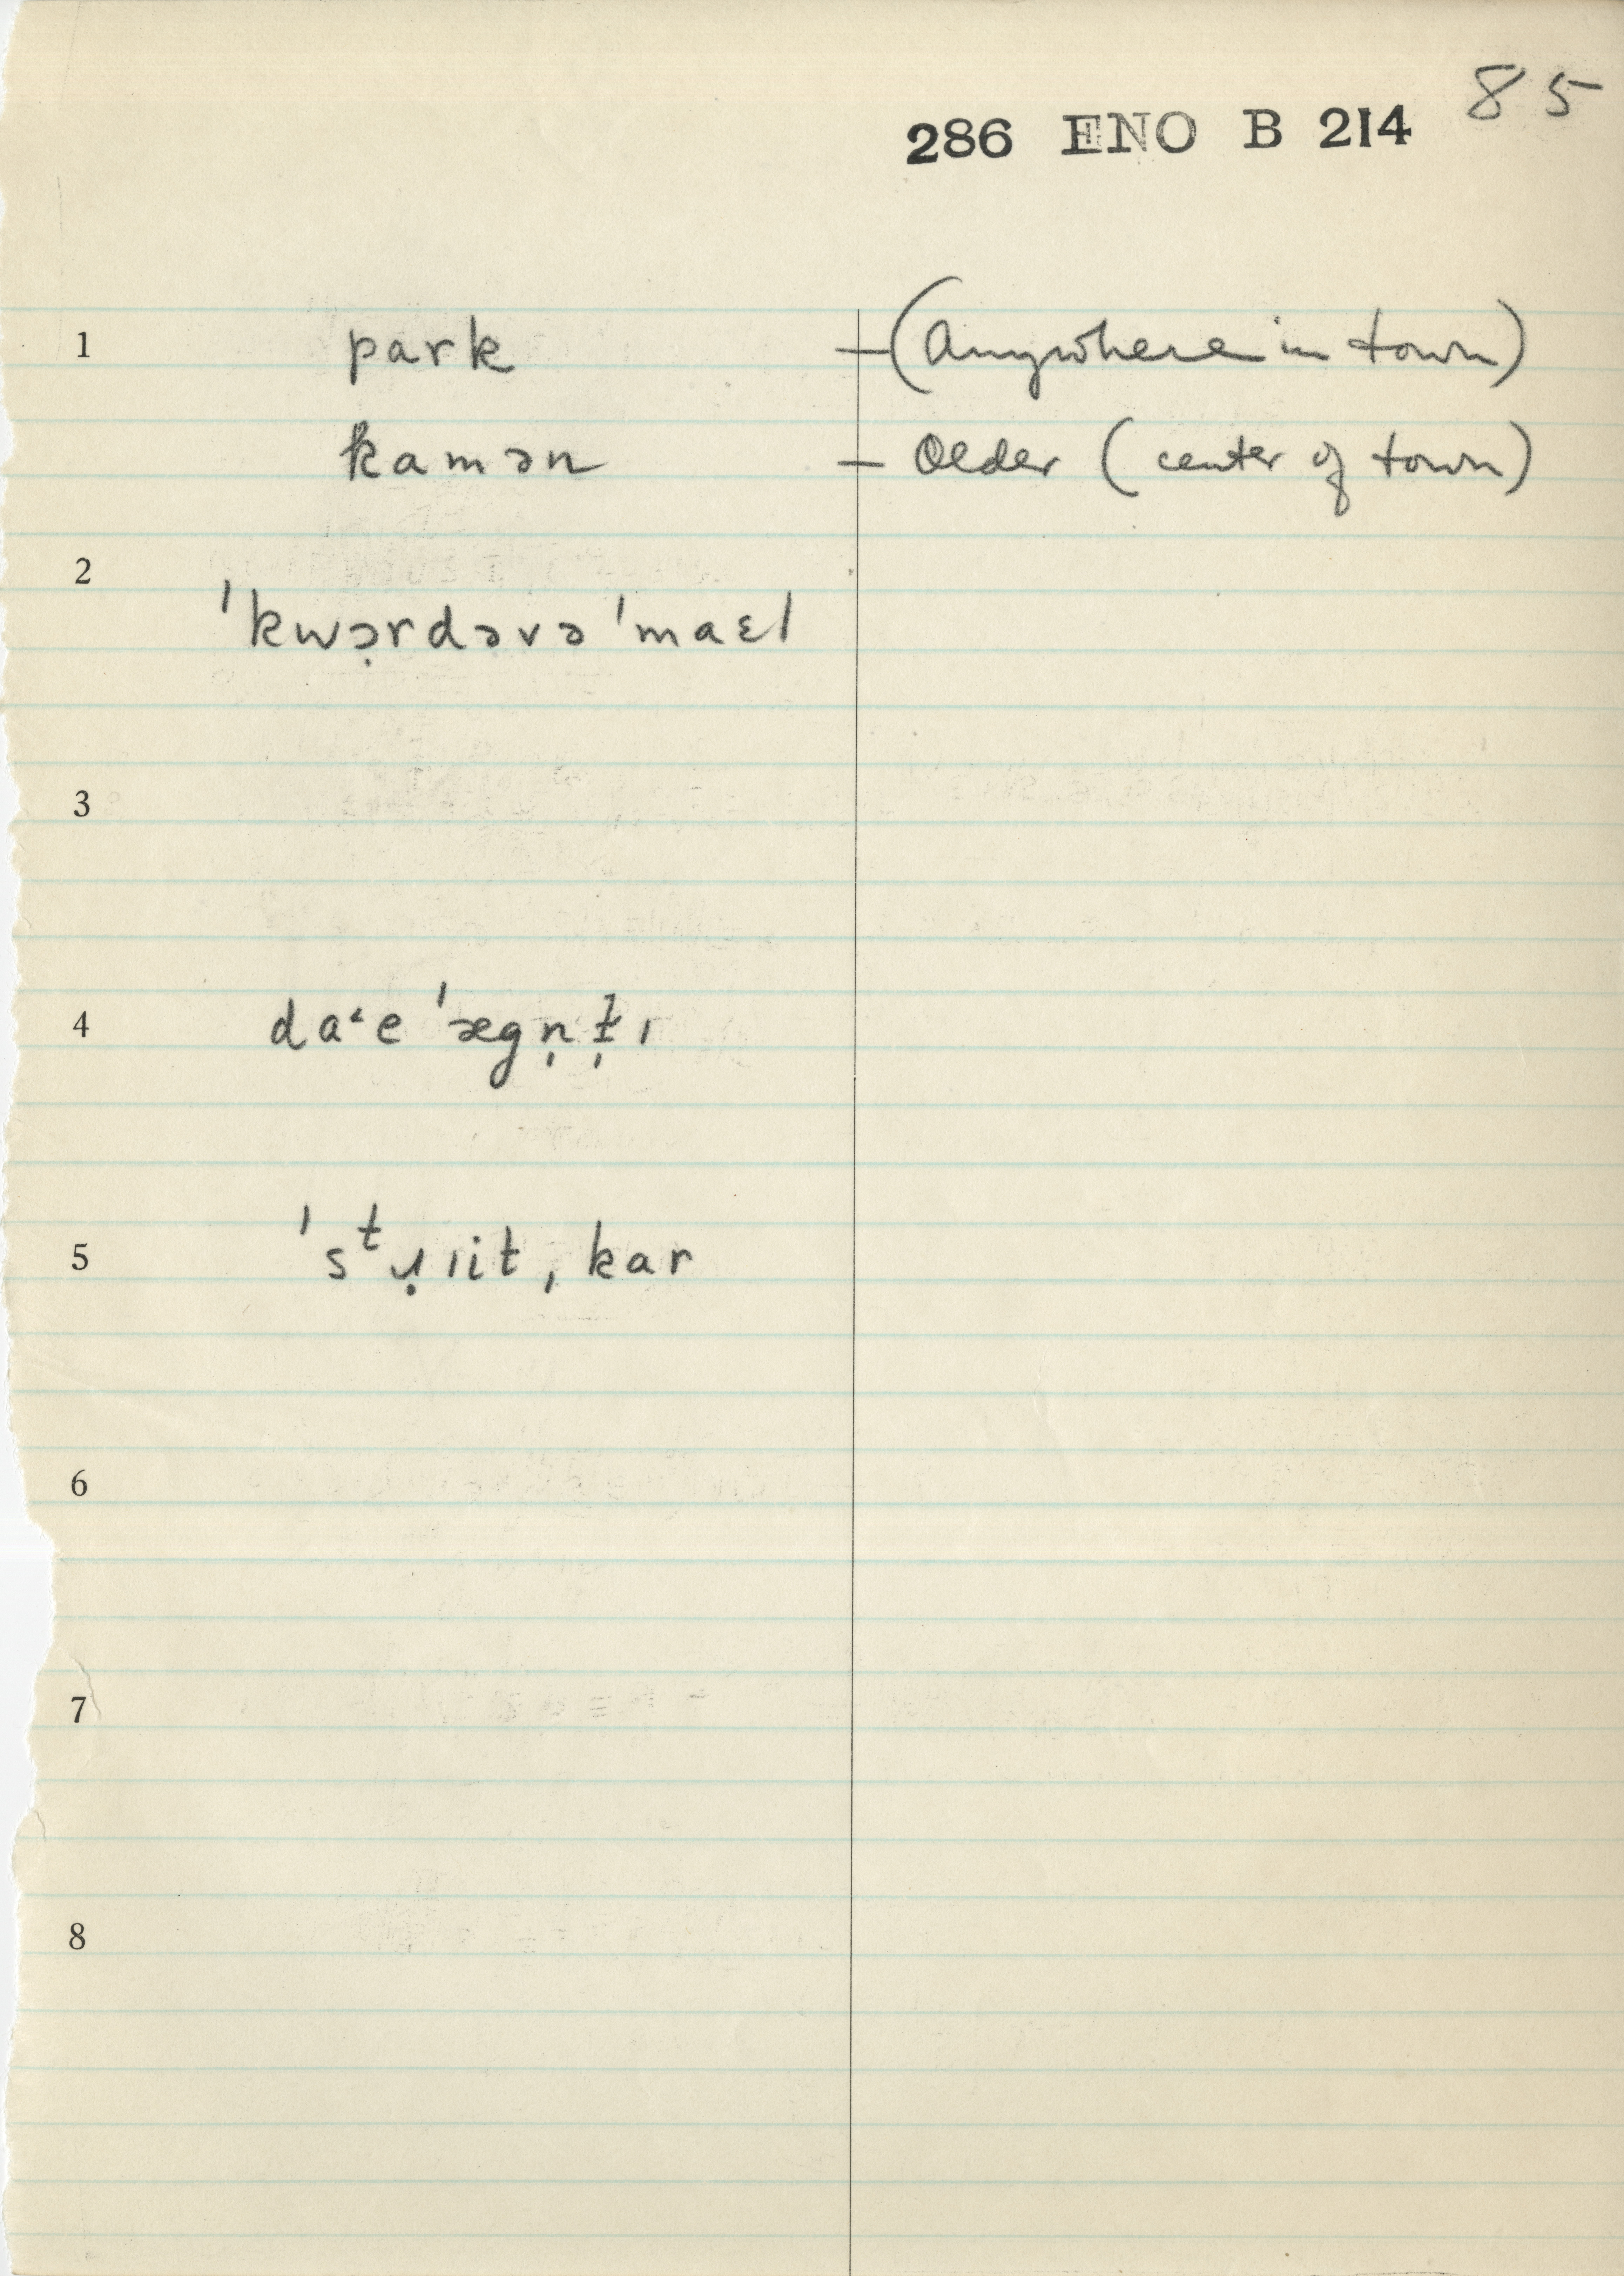 85
286 ENO B 214
1 park —(Anywhere in town)
kamən — Older (center of town)
2
ˈkwə̣rdəvə ˈmaɛl
3
4 daˑe ˈægn̩t̬̩ɪ
5 ˈsᵗɹ̣ɪit, kar
6
7
8